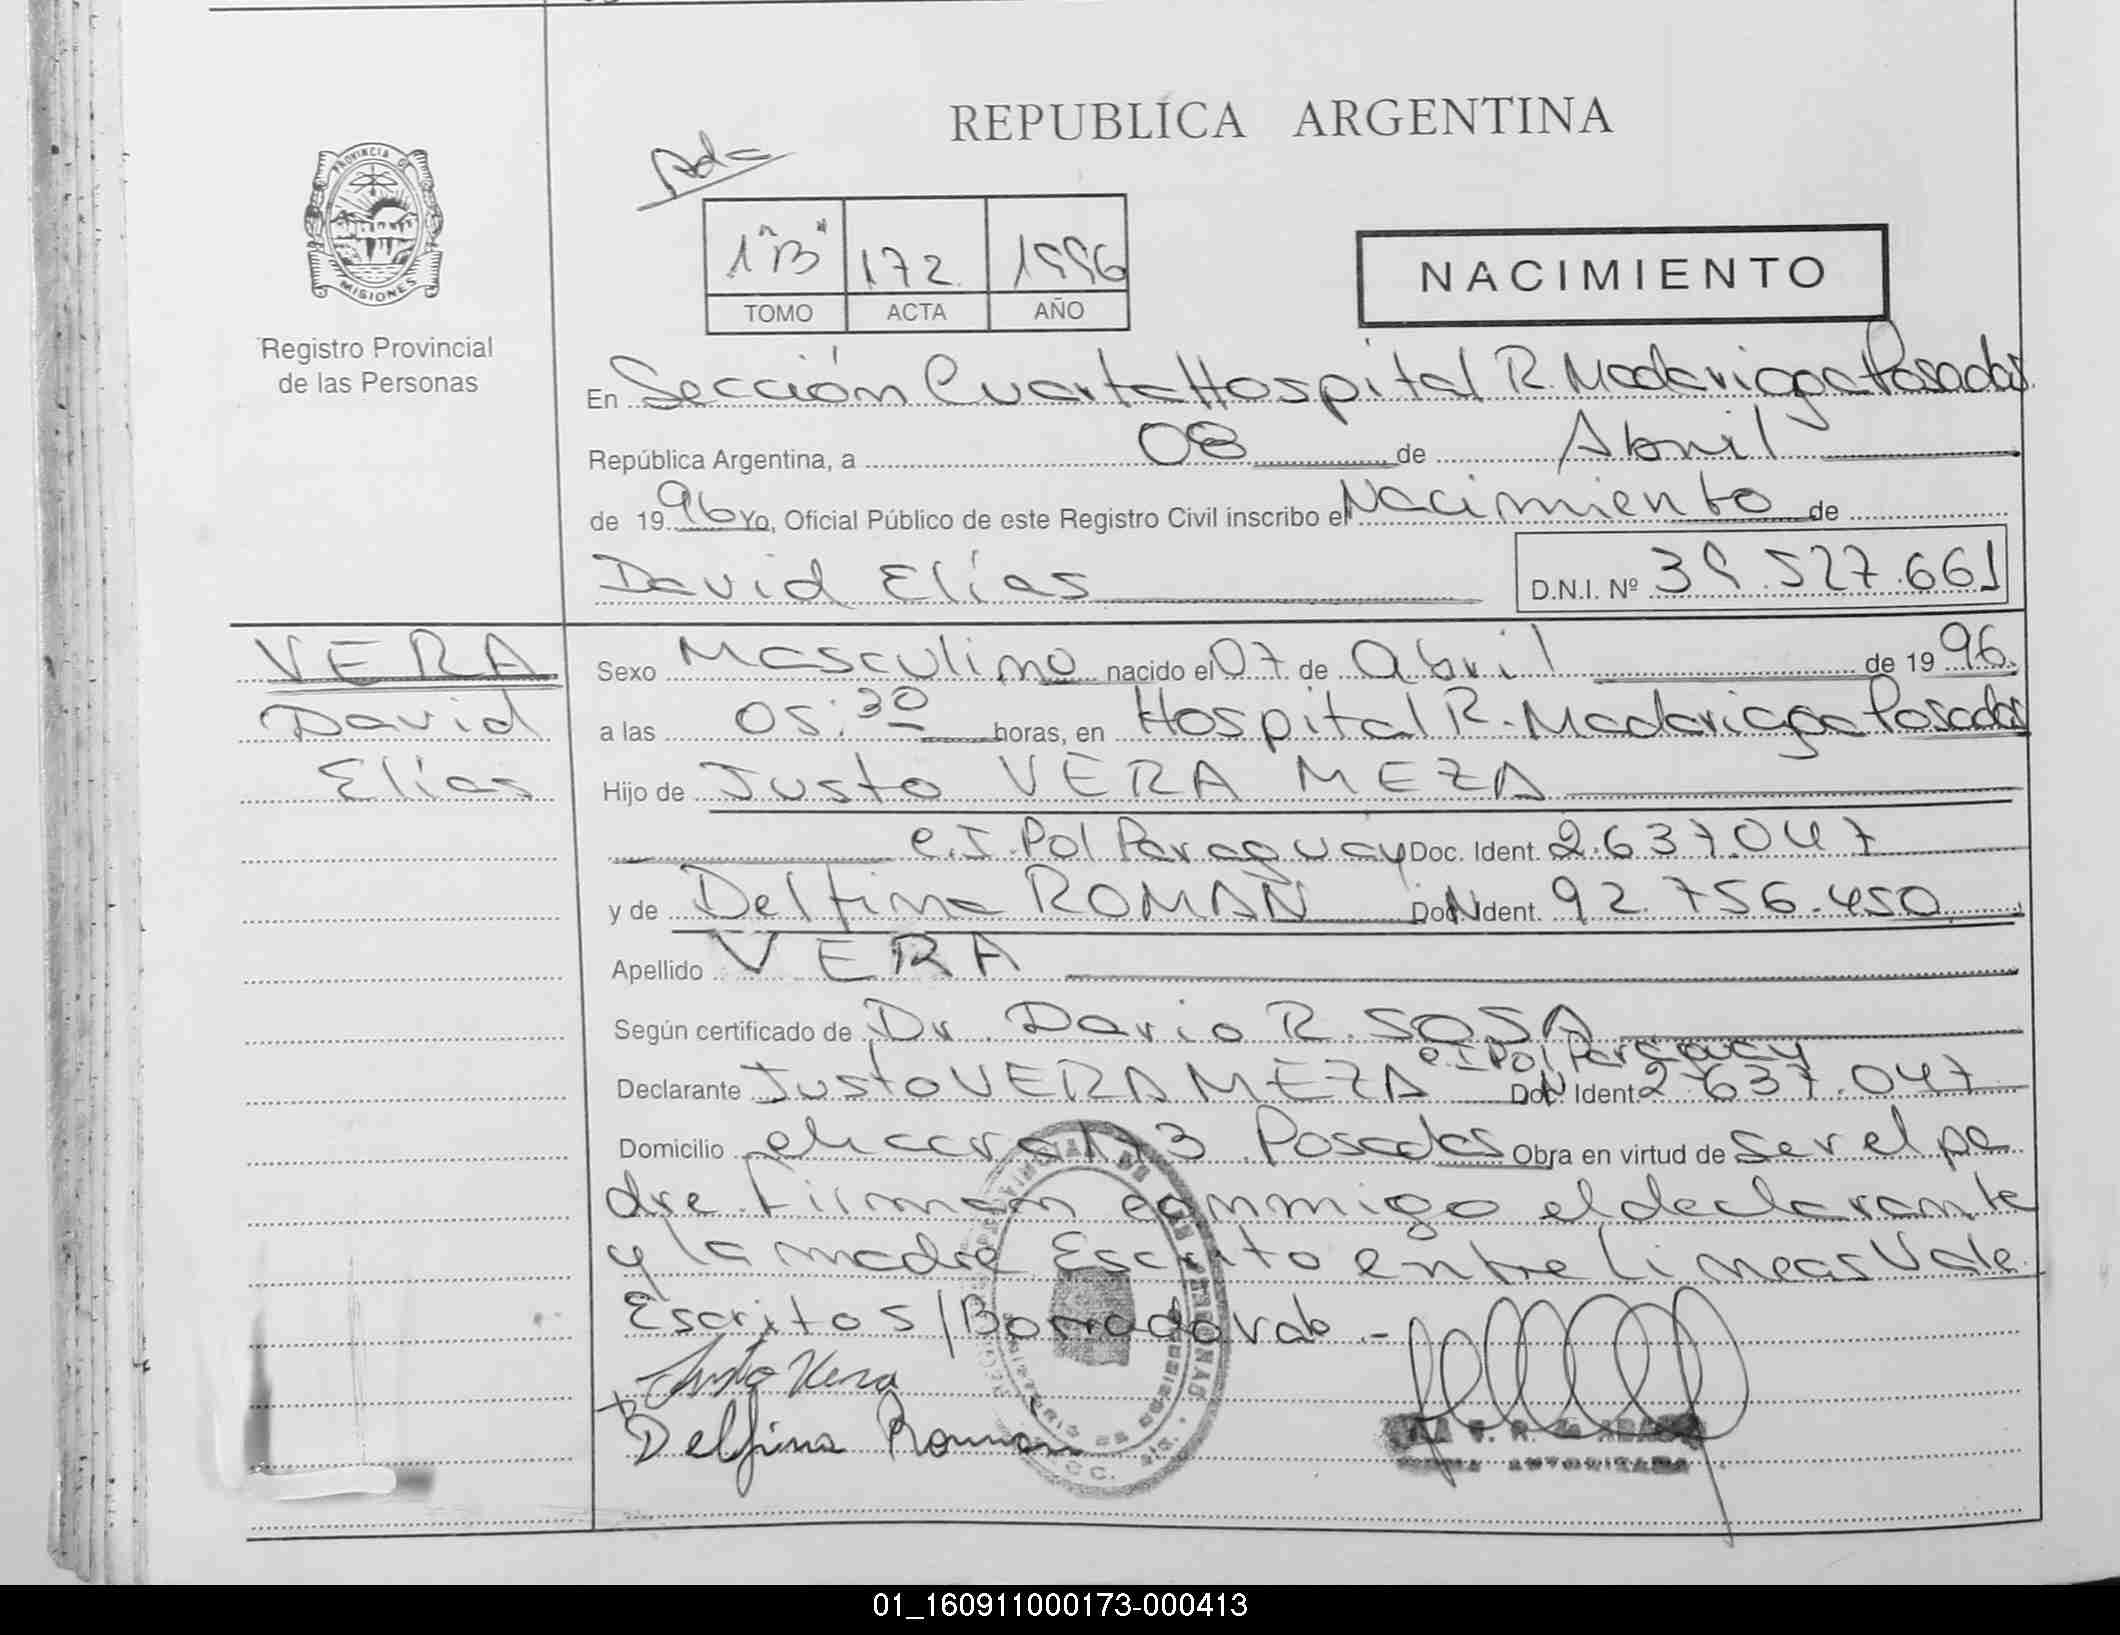 REPUBLICA ARGENTINA
PROVINCIA DE
MISIONES
Registro Provincial
de las Personas
Adc
1"B" 172 1996
TOMO ACTA AÑO
NACIMIENTO
En Sección Cuarta Hospital R. Madariaga Posadas
República Argentina, a 08 de Abril
de 1996 Yo, Oficial Público de este Registro Civil inscribo el Nacimiento de
David Elías D.N.I. Nº 39.527.661
VERA
David
Elías
Sexo Masculino nacido el 07 de abril de 1996
a las 05:30 horas, en Hospital R. Madariaga Posadas
Hijo de Justo VERA MEZA
e.I.Pol Paraguay Doc. Ident. 2.637.047
y de Delfina ROMAN Doc. Ident. 92.756.450
Apellido VERA
Según certificado de Dr. Dario R. SOSA
e.I Pol Paraguay
Declarante Justo VERA MEZA Doc. Ident 2.637.047
Domicilio chacra 173 Posadas Obra en virtud de ser el pa
dre. Firman conmigo el declarante
y la madre Escrito entre lineas Vale
Escritos/Borrado Vale.-
Justo Vera
Delfina Roman
01_160911000173-000413